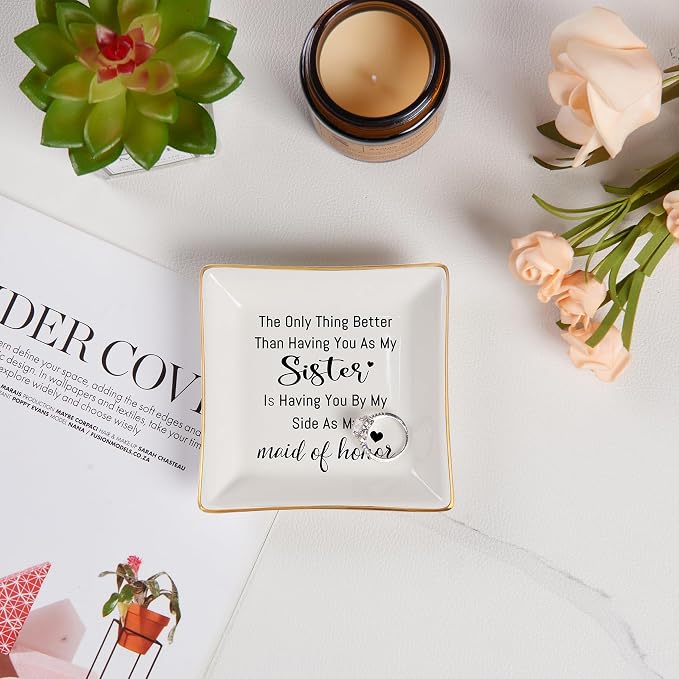 The Only Thing Better
Than Having You As My
Sister
Is Having You By My
Side As M
maid of honor
DER COV
ern define your space, adding the soft edges and
c design. In wallpapers and textiles, take your time
explore widely and choose wisely
MARAIS PRODUCTION MAYBE CORPACI HAIR & MAKE-UP SARAH CHASTEAU
POPPY EVANS MODEL NANA / FUSIONMODELS.CO.ZA